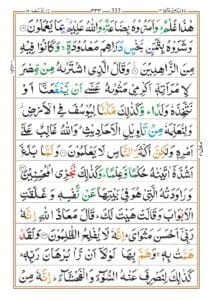 ۳۳۳ 333
هٰذَا غُلٰمٌ وَاَسَرُّوْهُ بِضَاعَةً وَاللّٰهُ عَلِيْمٌۢ بِمَا يَعْمَلُوْنَ
وَشَرَوْهُ بِثَمَنٍۭ بَخْسٍ دَرَاهِمَ مَعْدُوْدَةٍ وَكَانُوْا فِيْهِ
مِنَ الزّٰهِدِيْنَ وَقَالَ الَّذِى اشْتَرٰىهُ مِنْ مِّصْرَ
لِامْرَاَتِهٖۤ اَكْرِمِىْ مَثْوٰىهُ عَسٰۤى اَنْ يَّنْفَعَنَاۤ اَوْ
نَتَّخِذَهٗ وَلَدًا وَكَذٰلِكَ مَكَّنَّا لِيُوْسُفَ فِى الْاَرْضِ
وَلِنُعَلِّمَهٗ مِنْ تَاْوِيْلِ الْاَحَادِيْثِ وَاللّٰهُ غَالِبٌ عَلٰۤى
اَمْرِهٖ وَلٰكِنَّ اَكْثَرَ النَّاسِ لَا يَعْلَمُوْنَ وَلَمَّا بَلَغَ
اَشُدَّهٗۤ اٰتَيْنٰهُ حُكْمًا وَّعِلْمًا وَكَذٰلِكَ نَجْزِى الْمُحْسِنِيْنَ
وَرَاوَدَتْهُ الَّتِىْ هُوَ فِىْ بَيْتِهَا عَنْ نَّفْسِهٖ وَغَلَّقَتِ
الْاَبْوَابَ وَقَالَتْ هَيْتَ لَكَ قَالَ مَعَاذَ اللّٰهِ اِنَّهٗ
رَبِّىْۤ اَحْسَنَ مَثْوَاىَ اِنَّهٗ لَا يُفْلِحُ الظّٰلِمُوْنَ وَلَقَدْ
هَمَّتْ بِهٖ وَهَمَّ بِهَا لَوْلَاۤ اَنْ رَّاٰ بُرْهَانَ رَبِّهٖ
كَذٰلِكَ لِنَصْرِفَ عَنْهُ السُّوْۤءَ وَالْفَحْشَآءَ اِنَّهٗ مِنْ